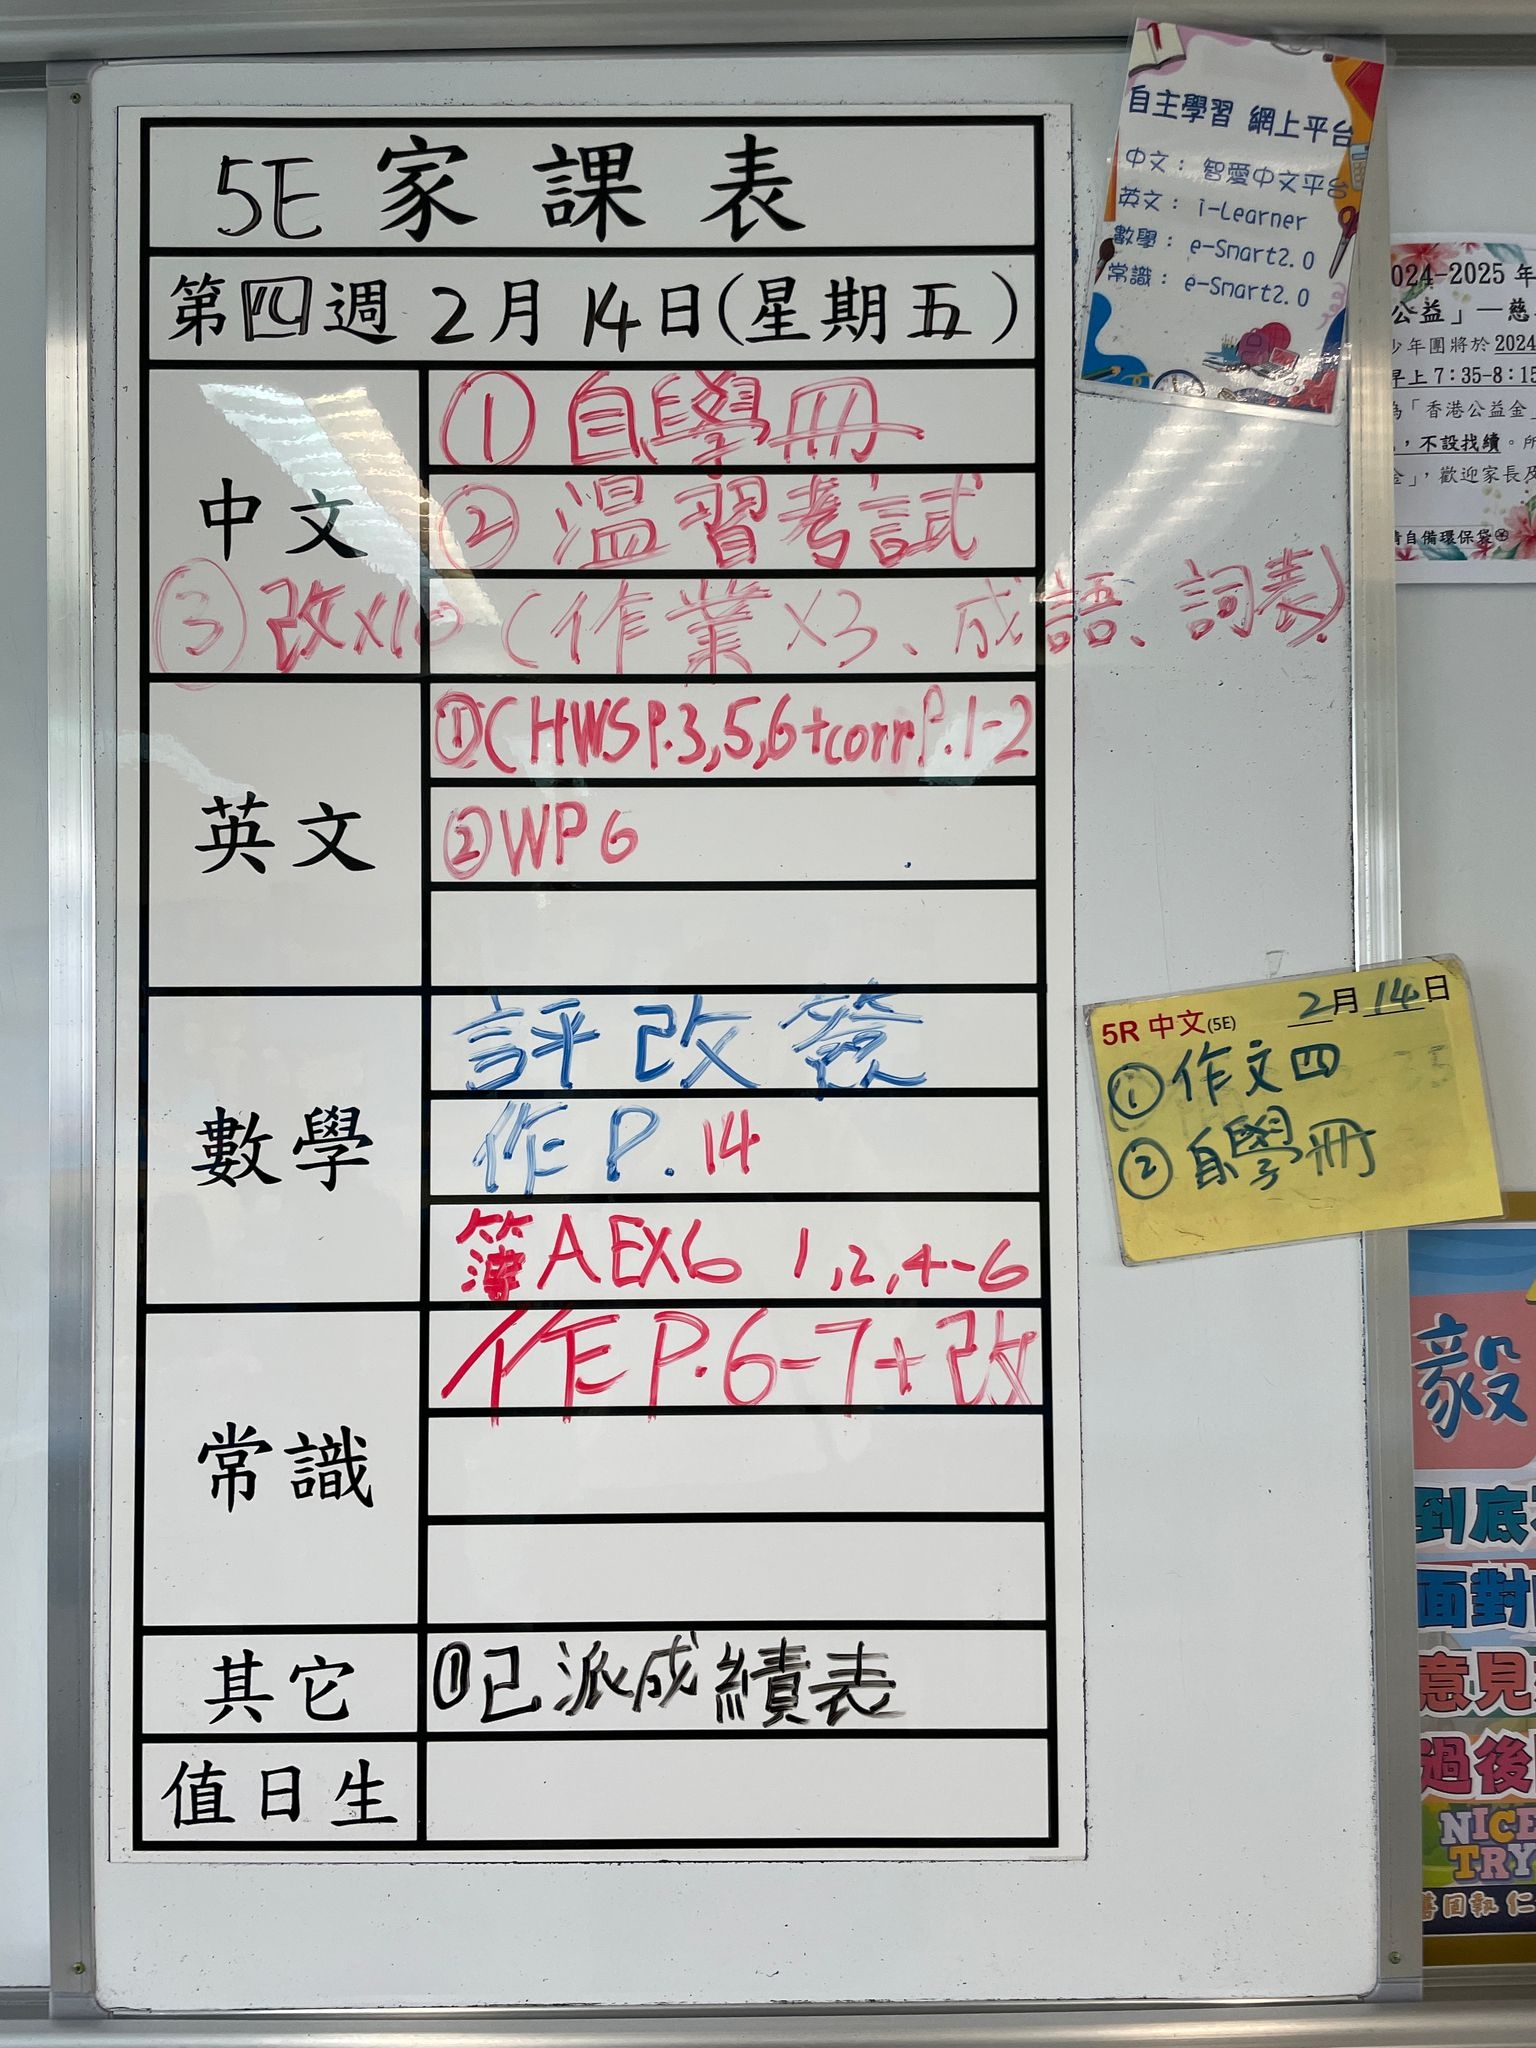 5E 家課表
第四週 2月14日(星期五)
中文
① 自學冊
② 温習考試
③ 改x10 (作業x3、成語、詞表)
英文
①CHWSP.3,5,6+corrP.1-2
②WP6
數學
評改簽
作 P.14
簿AEX6 1,2,4-6
常識
作P.6-7+改
其它
①已派成績表
值日生
自主學習 網上平台
中文：智愛中文平台
英文：i-Learner
數學：e-Smart2.0
常識：e-Smart2.0
024-2025 年
公益」—慈
少年團將於 2024
早上 7:35-8:15
為「香港公益金」
，不設找續。所
金」，歡迎家長及
請自備環保袋
5R 中文(5E) 2月14日
① 作文四
② 自學冊
毅
到底
面對
意見
過後
NICE
TRY
善固執 仁